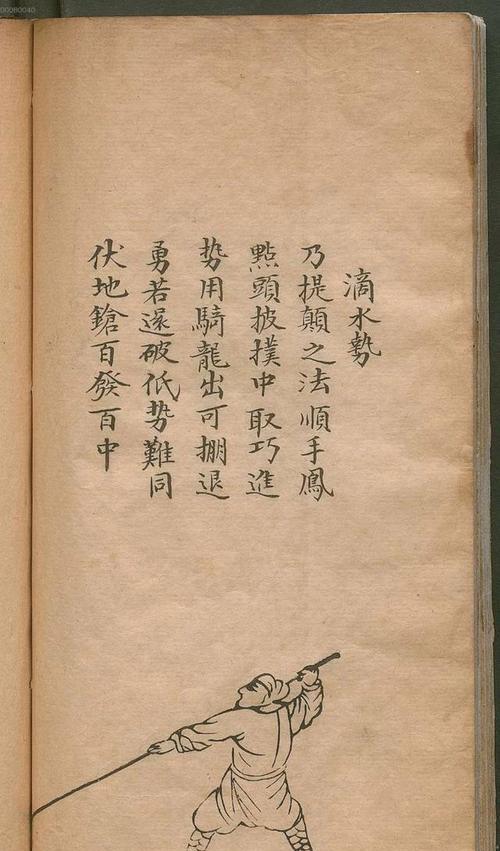 滴水勢
乃提顛之法順手鳳
點頭披撲中取巧進
势用騎龍出可掤退
勇若还破低势難同
伏地鎗百發百中
00080040